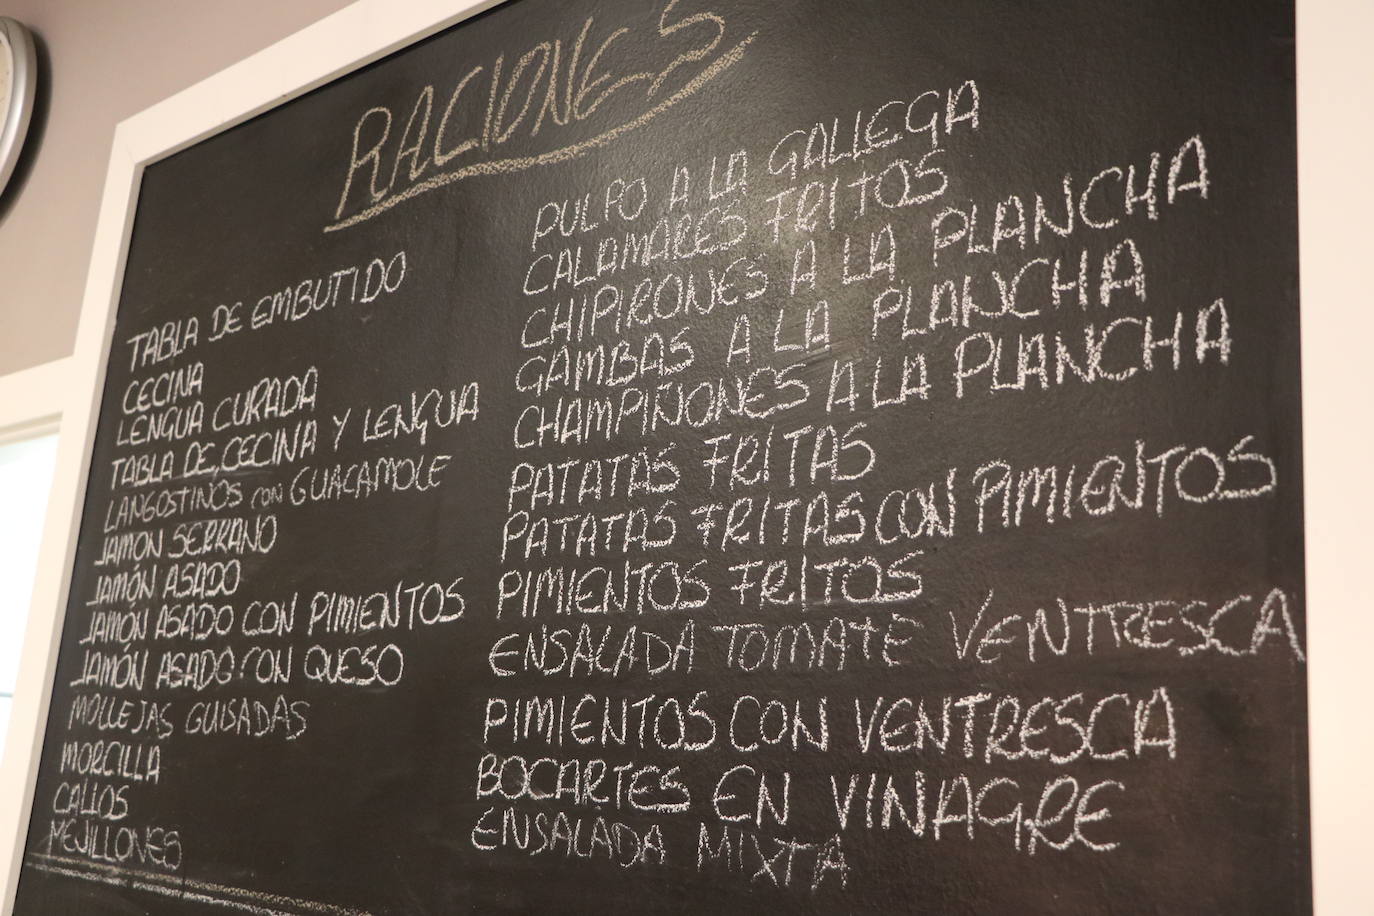 RACIONES
TABLA DE EMBUTIDO
CECINA
LENGUA CURADA
TABLA DE CECINA Y LENGUA
LANGOSTINOS CON GUACAMOLE
JAMON SERRANO
JAMÓN ASADO
JAMÓN ASADO CON PIMIENTOS
JAMÓN ASADO CON QUESO
MOLLEJAS GUISADAS
MORCILLA
CALLOS
MEJILLONES
PULPO A LA GALLEGA
CALAMARES FRITOS
CHIPIRONES A LA PLANCHA
GAMBAS A LA PLANCHA
CHAMPIÑONES A LA PLANCHA
PATATAS FRITAS
PATATAS FRITAS CON PIMIENTOS
PIMIENTOS FRITOS
ENSALADA TOMATE VENTRESCA
PIMIENTOS CON VENTRESCA
BOCARTES EN VINAGRE
ENSALADA MIXTA